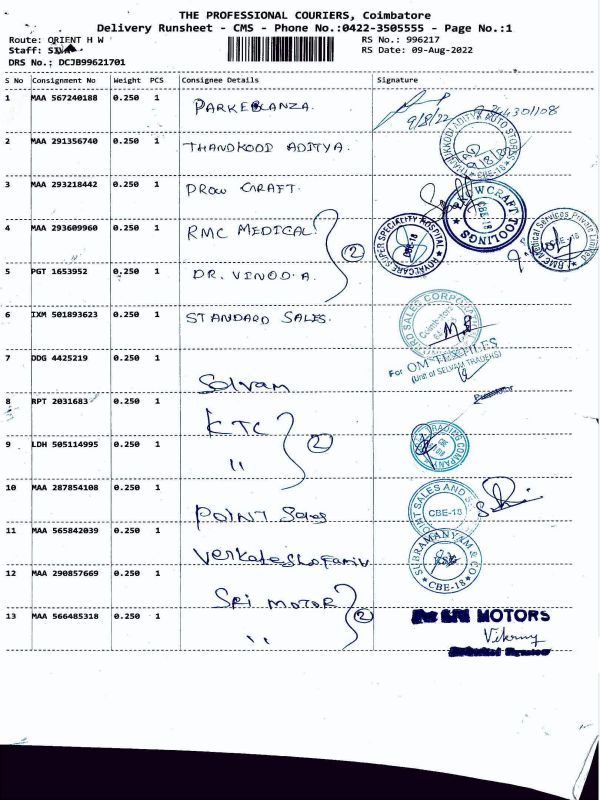 THE PROFESSIONAL COURIERS, Coimbatore
Delivery Runsheet - CMS - Phone No.:0422-3505555 - Page No.:1
Route: ORIENT H W
RS No.: 996217
Staff: SIVA
RS Date: 09-Aug-2022
DRS No.: DCJB99621701
S No Consignment No Weight PCS Consignee Details Signature
1 MAA 567240188 0.250 1 9/8/22
2 MAA 291356740 0.250 1 THANDKOOD ADITYA.
3 MAA 293218442 0.250 1 DROW CRAFT. WCRAFT TOOLINGS CBE-18
4 MAA 293609960 0.250 1 RMC MEDICAL 2 ROYALCARE SUPER SPECIALITY HOSPITAL CBE-18 RMC Medical Services Private Limited
5 PGT 1653952 0.250 1 DR. VINOD.A.
6 IXM 501893623 0.250 1 STANDARD SALES. RD SALES CORPORATION Coimbatore
7 DDG 4425219 0.250 1 Selvam For OM TEXTILES
(Unit of SELVAM TRADERS)
8 RPT 2031683 0.250 1 KTC 2
9 LDH 505114995 0.250 1 " TRADING COMPANY
10 MAA 287854108 0.250 1 POINT Sales POINT SALES AND CBE-18
11 MAA 565842039 0.250 1 SUBRAMANYAM & CO CBE-18
12 MAA 290857669 0.250 1 SRI MOTOR 2
13 MAA 566485318 0.250 1 " For SRI MOTORS